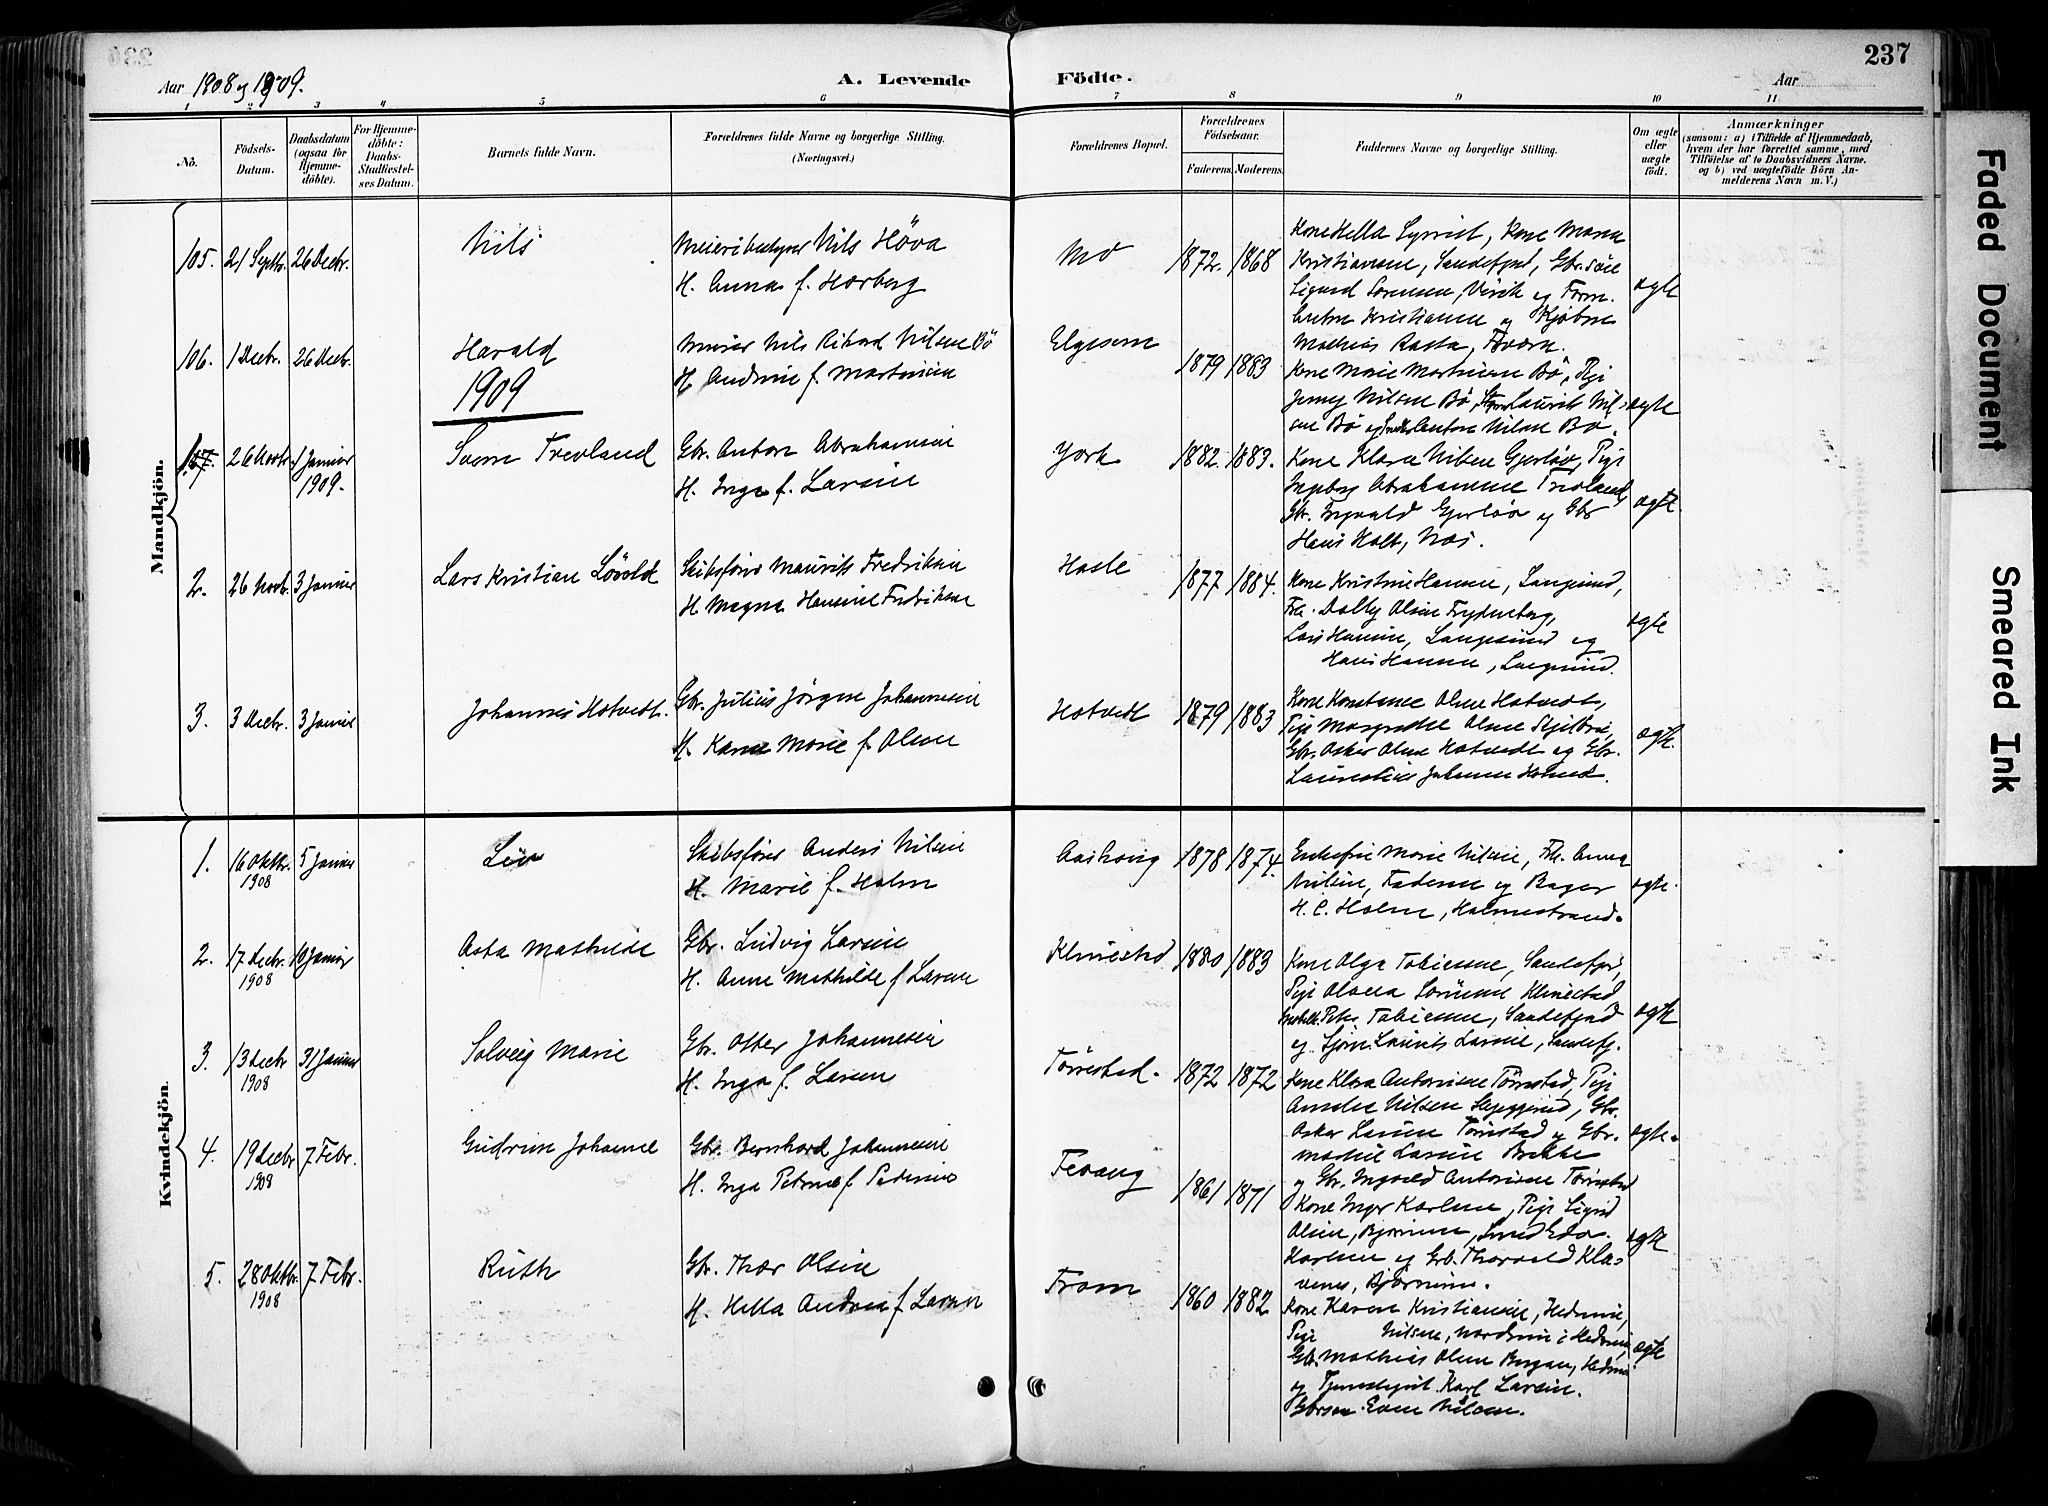 237
Aar 1908 og 1909.
A. Levende
Födte.
Aar
1 2 3 4 5 6 7 8 9 10 11
No.
Födsels-Datum.
Daabsdatum (ogsaa for Hjemmedöbte).
For Hjemmedöbte: Daabs-Stadfæstelses Datum.
Barnets fulde Navn.
Forældrenes fulde Navne og borgerlige Stilling.
(Næringsvei.)
Forældrenes Bopæl.
Forældrenes Födselsaar.
Faderens. Moderens.
Faddernes Navne og borgerlige Stilling.
Om ægte eller uægte födt.
Anmærkninger
(saasom: a) i Tilfælde af Hjemmedaab, hvem der har forrettet samme, med Tilföielse af to Daabsvidners Navne. og b) ved uægtefödte Börn Anmelderens Navn m. V.)
Mandkjön.
105. 21 Septbr. 26 Decbr.
Nils
Meieribestyrer Nils Höva
H. Anna f. Horberg
Mo
1872. 1868
Kristiansen, Sandefjord,
ægte
106. 1 Decbr. 26 Decbr.
Harald
Nils Rikard Nilsen Bö
H. Andrine f. Martinsen
Elgesem
1879 1883
Kone Marie Martinsen Bö, Pige
Jenny Nilsen Bö, Laurits Nil-
sen Bö og Anton Nilsen Bö.
ægte
1909
26 Novbr. 1 Januar 1909.
Trevland
Gbr. Anton Abrahamsen
H. Inga f. Larsen
York
1882. 1883.
Kone Klara Nilsen Gjerløv, Pige
Ingeborg Abrahamsen Trevland,
Gbr. Ingvald Gjerløv og Gbr
Hans Holt, Næs.
ægte.
2. 26 Novbr. 3 Januar
Lars Kristian Lövold
Skibsförer Maurits Fredriksen
H. Magna Hansine Fredriksen
Hasle
1877 1884.
Kone Kristine Hansen, Langesund,
Frk. Dolly Olsen Frydenberg,
Lars Hansen, Langesund og
Hans Hansen, Langesund.
ægte
3. 3 Decbr. 3 Januar
Johannes Hotvedt.
Gbr. Julius Jörgen Johannesen
H. Karen Marie f. Olsen
Hotvedt
1879 1883
Kone Konstanse Olsen Hotvedt,
Pige Margrethe Olsen
Gbr. Oskar Olsen Hotvedt og Gbr.
Johansen
ægte.
Kvindekjön.
1. 16 Oktbr. 1908 5 Januar
Liv
Skibsförer Anders Nilsen
H. Marie f. Holm
1878 1874.
Enkefru Marie Nilsen, Frk. Anna
Nilsen, Faderen og Bager
H. C. Holm, Holmestrand.
ægte.
2. 17 Decbr. 1908 10 Januar
Asta Mathilde
Gbr. Ludvig Larsen
H. Anne Mathilde f. Larsen
Klinestad
1880 1883
Kone Olga Tobiesen, Sandefjord,
Pige Olava Sörensen Klinestad,
Peter Tobiesen, Sandefjord
og Laurits Larsen, Sandefj.
ægte
3. 13 Decbr 1908 31 Januar
Solveig Marie
Gbr. Otter Johannesen
H. Inga f. Larsen
Törrestad.
1872 1872
Kone Klara Antonisen Törrestad, Pige
Amalie Nilsen Gbr.
Oskar Larsen Törrestad og Gbr.
Mathil Larsen Bakke
og Gbr. Ingvald Antonisen Törrestad
ægte.
4. 19 Decbr 1908 7 Febr.
Gudrun Johanne
Gbr. Bernhard Johannesen
H. Inga Petrine f. Pedersen
Fevang
1861 1871
Kone Inger Karlsen, Pige Sigrid
Olsen, Bjørnum,
Karlsen og Grb. Thorvald Kla-
venes, Bjørnum.
ægte
5. 28 Oktbr. 1908 7 Febr.
Ruth
Gbr. Thor Olsen
H. Hella Andrea f. Larsen
Fram
1860 1882
Kone Karen Kristiansen, Hedrum,
Pige Nilsen, i Hedrum,
Gbr. Mathias Olsen Bergan, Hedrum
og Karl Larsen.
Even Nilsen.
ægte
Faded Document
Smeared Ink